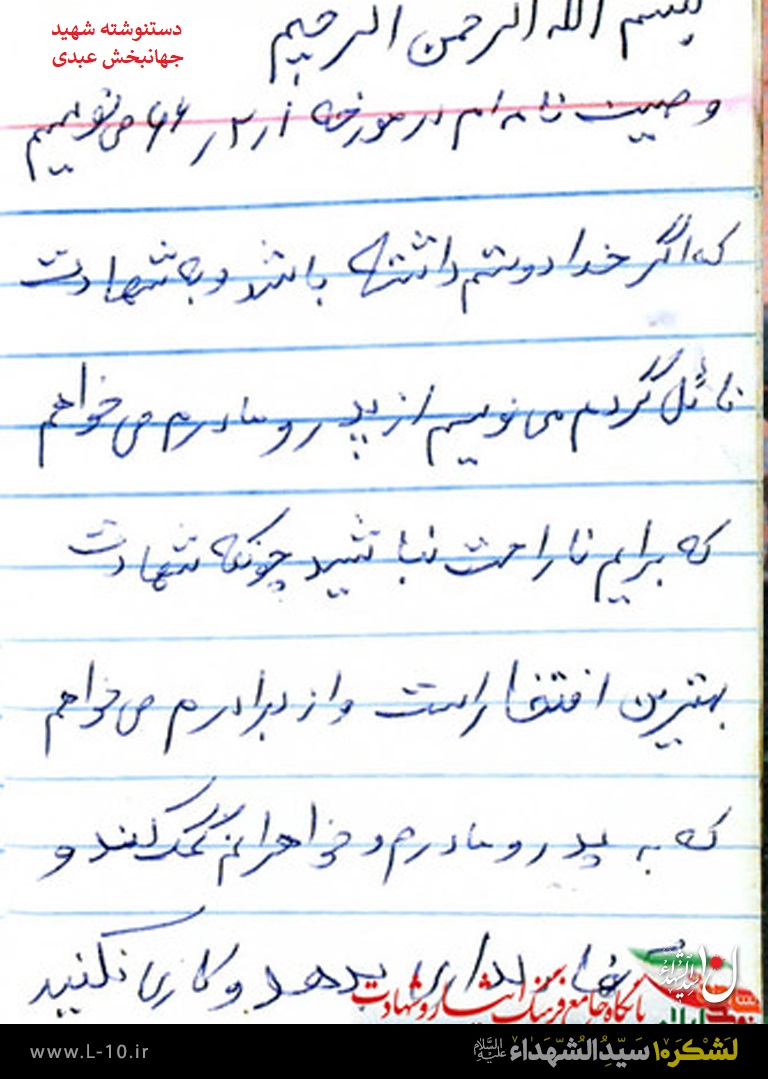 دستنوشته شهید
جهانبخش عبدی
بسم الله الرحمن الرحیم
وصیت نامه ام در مورخه ۱ر۲ر۶۶ می نویسیم
که اگر خدا دوستم داشته باشد و به شهادت
نائل گردم می نویسم از پدر و مادرم می خواهم
که برایم ناراحت نباشید چونکه شهادت
بهترین افتخار است و از برادرم می خواهم
که به پدر و مادرم و خواهرانم کمک کند و
بدهد و کاری نکنید
پایگاه جامع فرهنگ ایثار و شهادت
www.L-10.ir
لشکر۱۰ سیدالشهداء علیه السلام